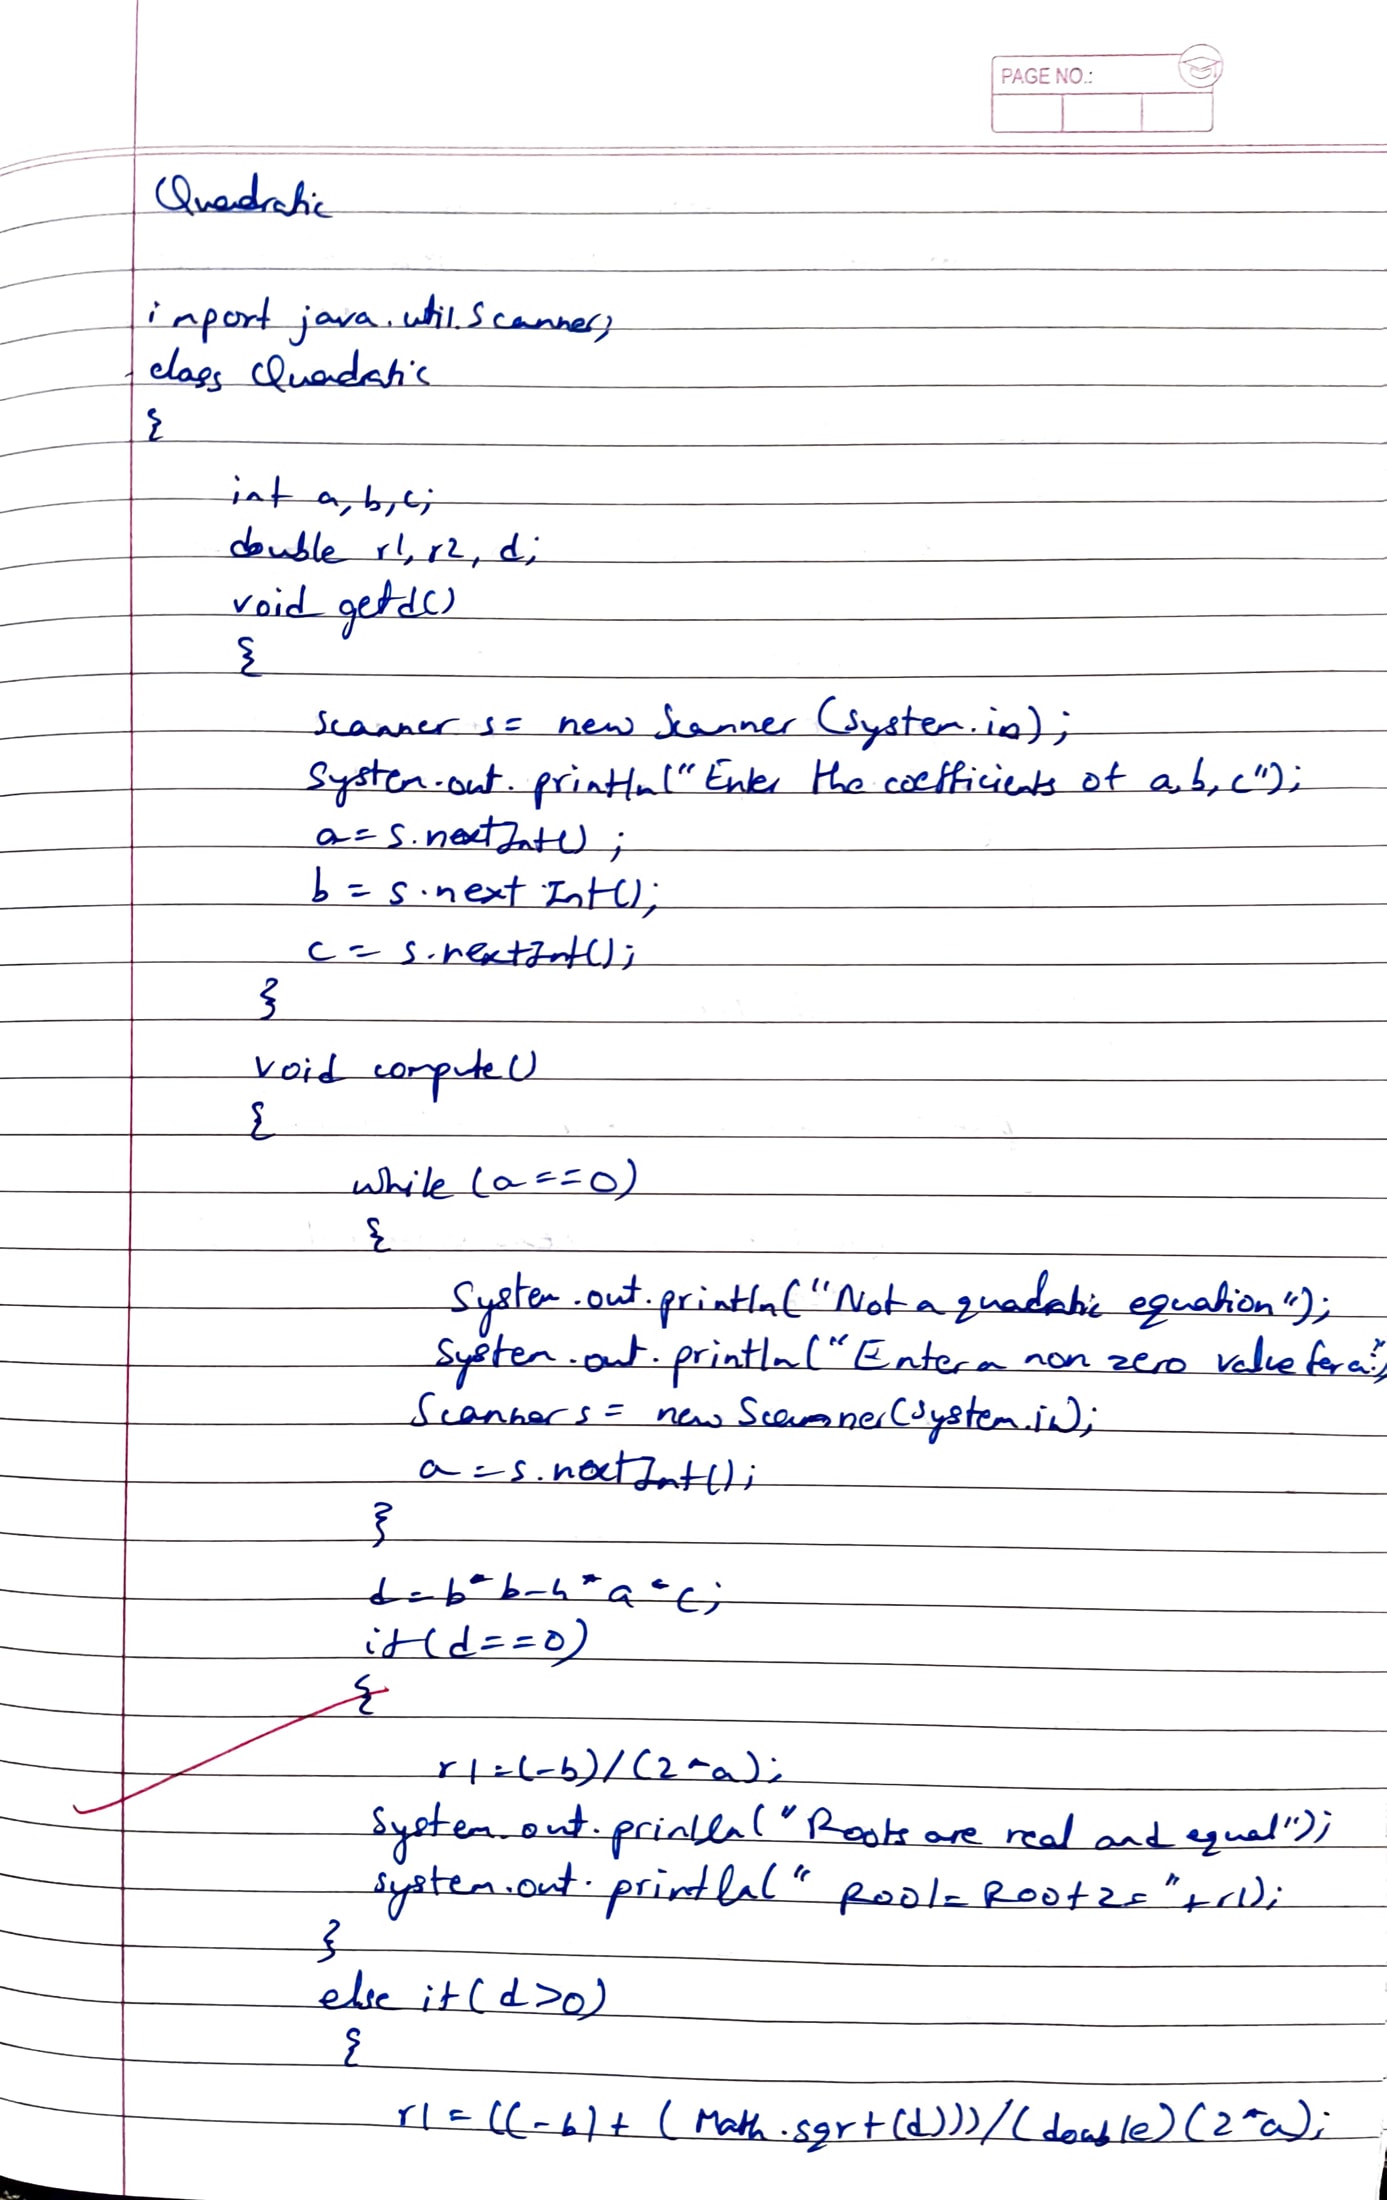 PAGE NO.:
Quadratic
import java.util.Scanner;
class Quadratic
{
int a, b, c;
double r1, r2, d;
void getd()
{
Scanner s = new Scanner (System.in);
System.out.println("Enter the coefficients of a, b, c");
a = s.nextInt();
b = s.nextInt();
c = s.nextInt();
}
void compute()
{
while (a==0)
{
System.out.println("Not a quadratic equation");
System.out.println("Enter a non zero value for a:");
Scanner s = new Scanner(System.in);
a = s.nextInt();
}
d = b*b-4*a*c;
if(d==0)
{
r1=(-b)/(2*a);
System.out.println("Roots are real and equal");
System.out.println(" Roo1= Root2= "+r1);
}
else if(d>0)
{
r1 = ((-b)+(Math.sqrt(d)))/(double)(2*a);